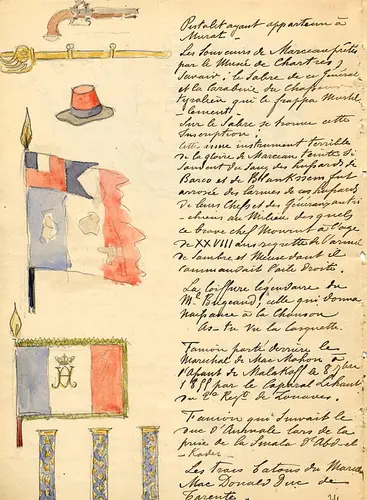 Pistolet ayant appartenu à
Murat.
Les Souvenirs de Marceau prêtés
par le Musée de Chartres,
Savoir: le Sabre de ce Général
et la Carabine du Chasseur
tyrolien qui le frappa Mortel-
lement.
Sur le Sabre se trouve cette
Inscription:
cette arme instrument terrible
de la gloire de Marceau teinte si
souvent du Sang des hussards de
Barco et de Blankstein fut
arrosée des larmes de ces hussards
de leurs Chefs et des Généraux autri-
chiens au Milieu des quels
ce brave chef Mourut à l'age
de XXVIII ans regretté de l'armée
de Sambre et Meuse dont il
commandait l'aile droite.
La Coiffure légendaire du
Mal Bugeaud, celle qui donna
naissance à la Chanson
As-tu vu la Casquette.
Fanion porté derrière le
Maréchal de Mac Mahon à
l'assaut de Malakoff le 8 7bre
1855 par le Caporal Lihaut
du 2e Regt de Zouaves.
Fanion qui suivait le
Duc d'Aumale lors de la
prise de la Smala d'Abd-el-
Kader.
Les trois batons du Marechal
Mac Donald Duc de
Tarente